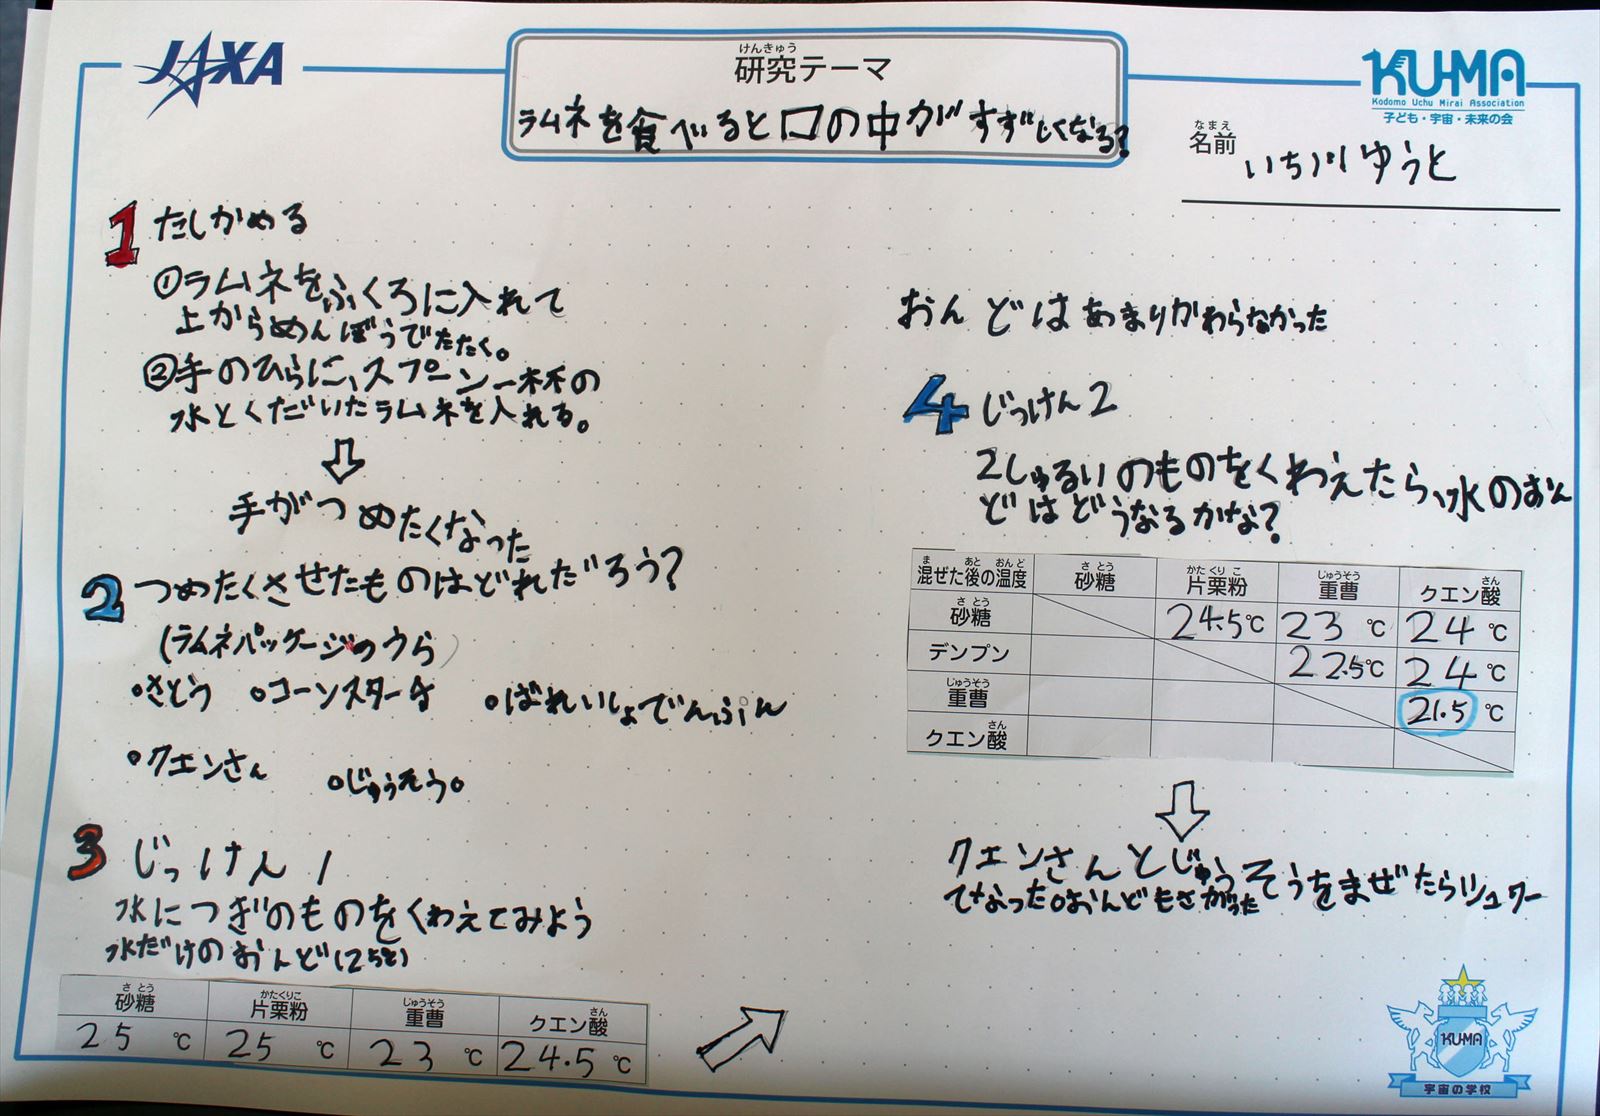 JAXA
けんきゅう
研究テーマ
ラムネを食べると口の中がすずしくなる?
KU-MA
Kodomo Uchu Mirai Association
子ども・宇宙・未来の会
なまえ
名前
いち川ゆうと
1 たしかめる
①ラムネをふくろに入れて
上からめんぼうでたたく。
②手のひらに、スプーン一杯の
水とくだいたラムネを入れる。
手がつめたくなった
2 つめたくさせたものはどれだろう?
(ラムネパッケージのうら)
・さとう ・コーンスターチ ・ばれいしょでんぷん
・クエンさん ・じゅうそう。
3 じっけん1
水につぎのものをくわえてみよう
水だけのおんど(25℃)
さとう かたくりこ じゅうそう さん
砂糖 片栗粉 重曹 クエン酸
25℃ 25℃ 23℃ 24.5℃
おんどはあまりかわらなかった
4 じっけん2
2しゅるいのものをくわえたら、水のおん
どはどうなるかな?
ま あと おんど さとう かたくりこ じゅうそう さん
混ぜた後の温度 砂糖 片栗粉 重曹 クエン酸
さとう
砂糖 24.5℃ 23℃ 24℃
デンプン 22.5℃ 24℃
じゅうそう
重曹 21.5℃
さん
クエン酸
クエンさんとじゅうそうをまぜたらシュワー
てなった。おんどもさがった
KU-MA
宇宙の学校